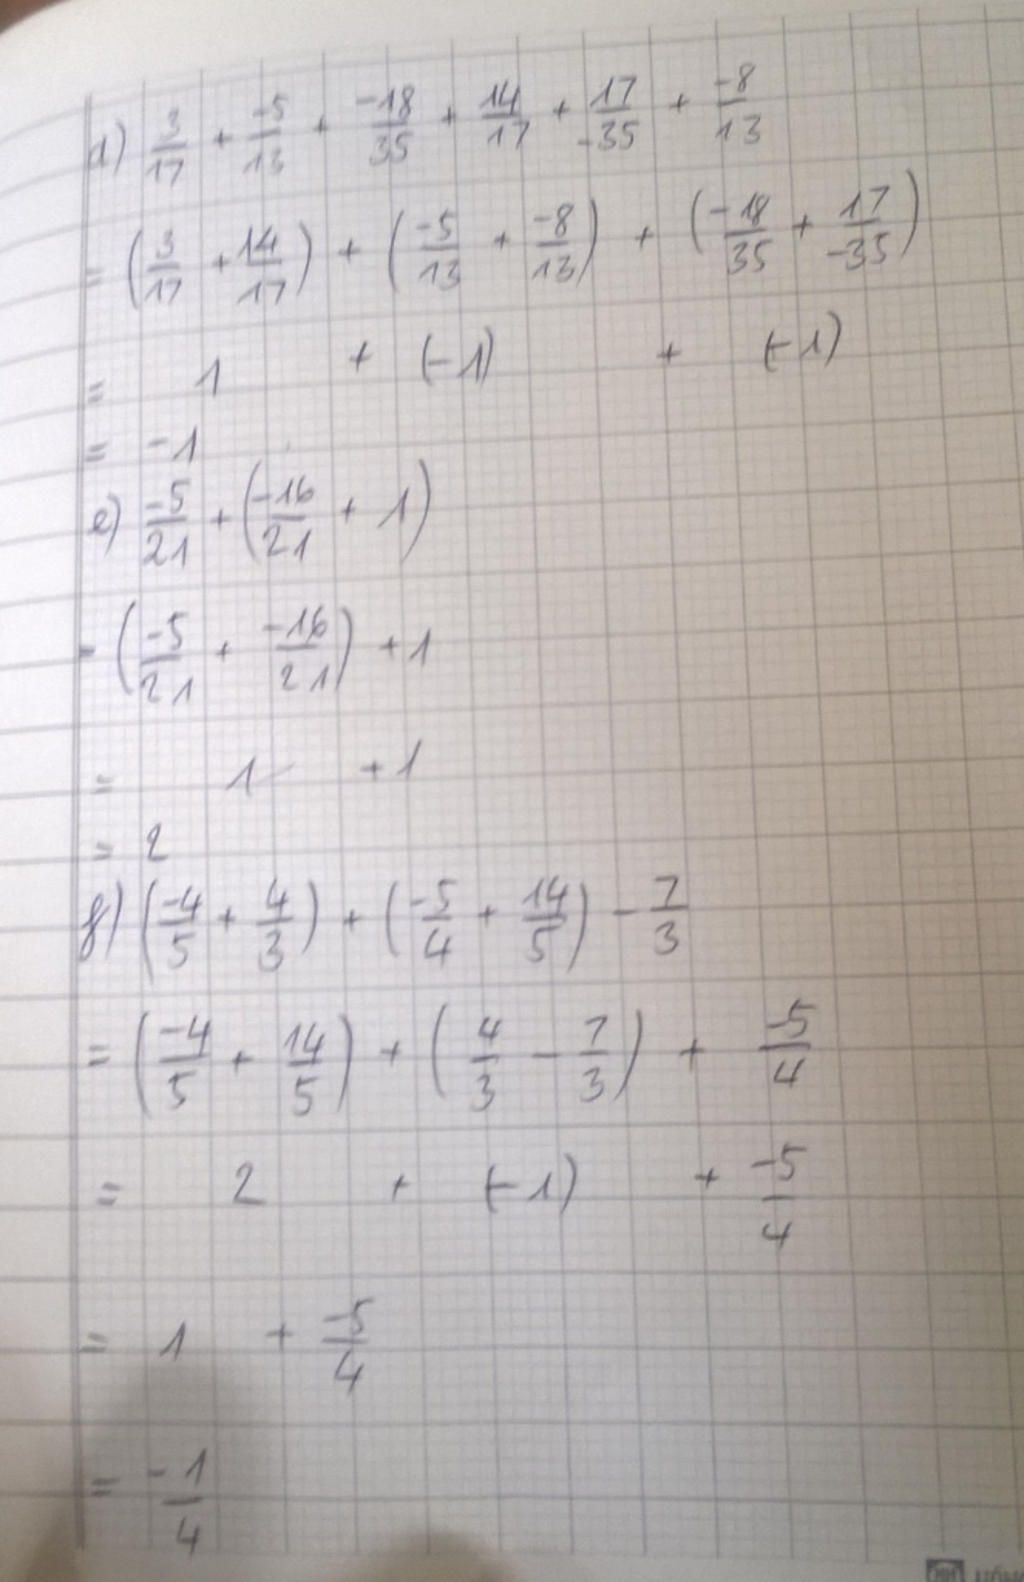 d) 3/17 + -5/13 + -18/35 + 14/17 + 17/-35 + -8/13
= (3/17 + 14/17) + (-5/13 + -8/13) + (-18/35 + 17/-35)
= 1 + (-1) + (-1)
= -1
e) -5/21 + (-16/21 + 1)
= (-5/21 + -16/21) + 1
= 1 + 1
= 2
f) (-4/5 + 4/3) + (-5/4 + 14/5) - 7/3
= (-4/5 + 14/5) + (4/3 - 7/3) + -5/4
= 2 + (-1) + -5/4
= 1 + -5/4
= -1/4